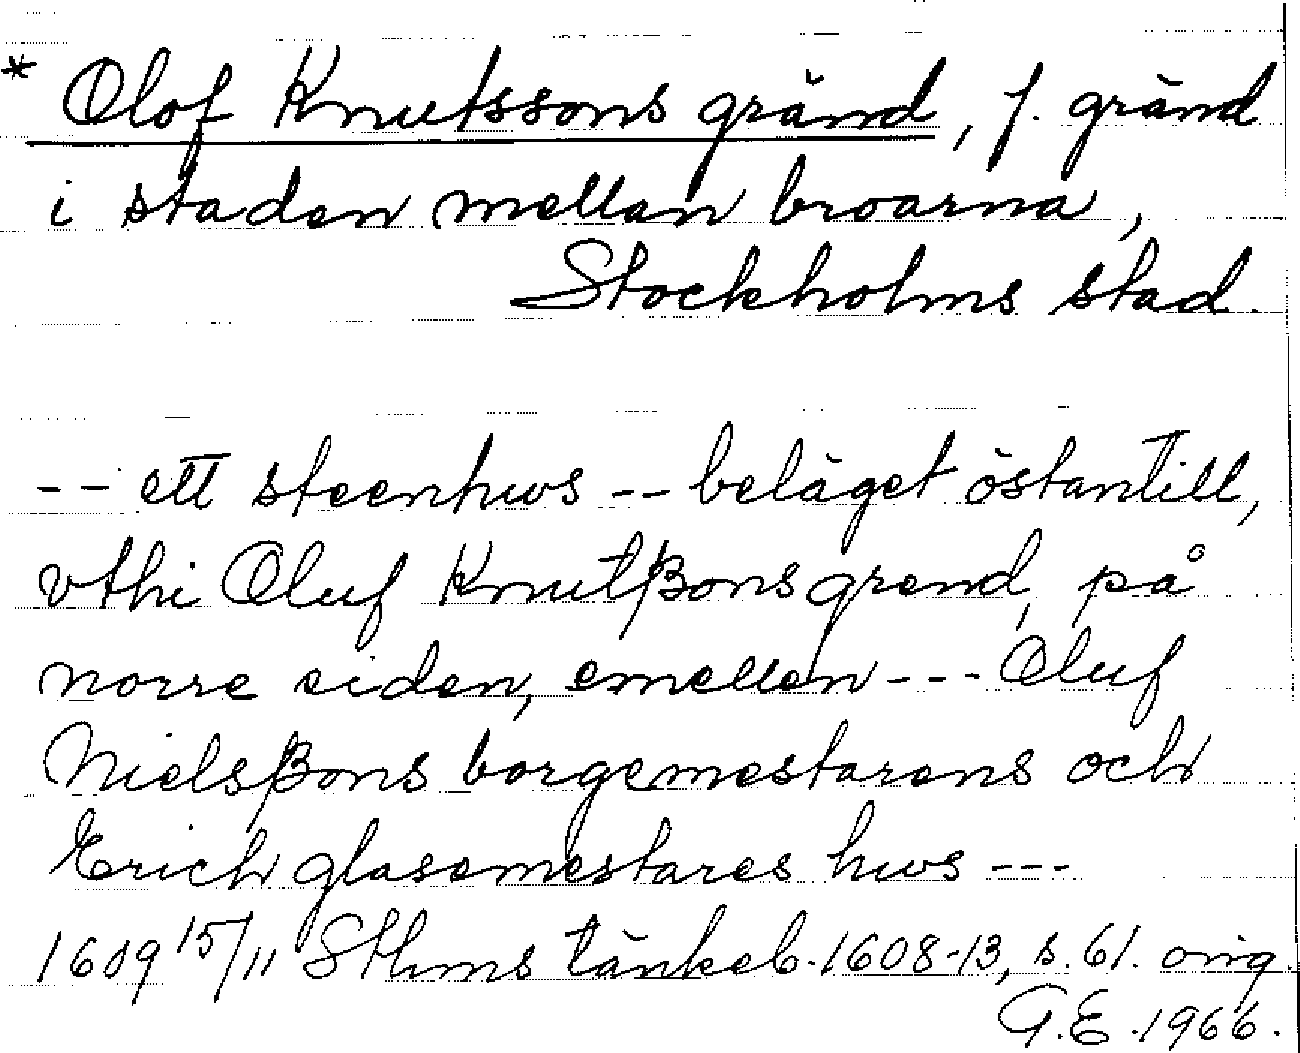 * Olof Knutssons gränd, f. gränd
i staden mellan broarna,
Stockholms stad.
-- ett steenhws -- beläget östantill,
vthi Oluf Knutßons grend, på
norre siden, emellen --- Oluf
Nielsßons borgemestarens och
Erich glasemestares hws ---
1609 15/11 Sthms tänkeb. 1608-13, s. 61. orig.
G.E. 1966.